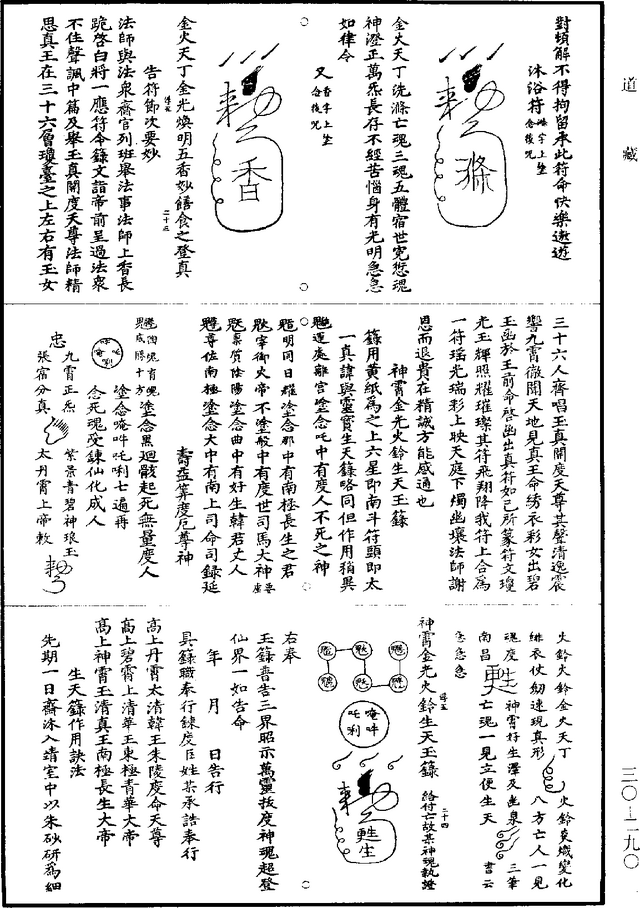 道藏
對頓解不得拘留承此符命快樂遨遊
沐浴符
滌
金火天丁洗滌亡魂三魂五體宿世冤愆魂
神澄正萬炁長存不經苦惱身有光明急急
如律令
又香字上坐念後咒
香
金火天丁金光煥明五香妙饍食之登真
告符節次要妙
法師與法眾齋官列班舉法事法師上香長
跪啓白將一應符令籙文詣帝前呈過法眾
不住聲諷中篇及舉玉真開度天尊法師精
思真王在三十六層瓊臺之上左右有玉女
三十六人齊唱玉真開度天尊其聲清逸震
響九霄徹聞天地見真王命綉衣彩女出碧
玉函於王前命啓函出真符如已所篆符文瓊
光玉輝照耀璀璨其符飛翔降我符上合為
一符瑶光瑞彩上映天庭下燭幽壤法師謝
恩而退貴在精誠方能感通也
神霄金光火鈴生天玉籙
籙用黃紙為之上六星即南斗符頭即太
一真諱與靈寶生天籙略同但作用稍異
運處離宮塗念吒中有度人不死之神
明同日耀塗念那中有南極長生之君
宰御火帝不塗般中有度世司馬大神
稟質陰陽塗念曲中有好生韓君丈人
尊佐南極塗念大中有南上司命司錄延
壽益筭度厄尊神
塗念黑迴骸起死無量度人
唵吽吒唎
塗念唵吽吒唎七遍再
念死魂受鍊仙化成人
忠
九霄正炁
紫景青碧神琅玉
張宿分真
太丹霄上帝敕
火鈴火鈴金火天丁
火鈴莫熾變化
緋衣仗劍速現真形
八方亡人一見
魂度
神霄好生澤及幽泉
三筆
南昌
亡魂一見立便生天
書云
急急急
神霄金光火鈴生天玉籙
給付亡故某神魂執證
唵吽吒唎
甦生
右奉
玉籙普告三界昭示萬靈拔度神魂超登
仙界一如告命
年 月 日告行
具籙職奉行鍊度臣姓某承誥奉行
高上丹霄太清韓王朱陵度命天尊
高上碧霄上清華王東極青華大帝
高上神霄玉清真王南極長生大帝
生天籙作用訣法
先期一日齋沐入靖室中以朱砂研為細
三〇—一九〇